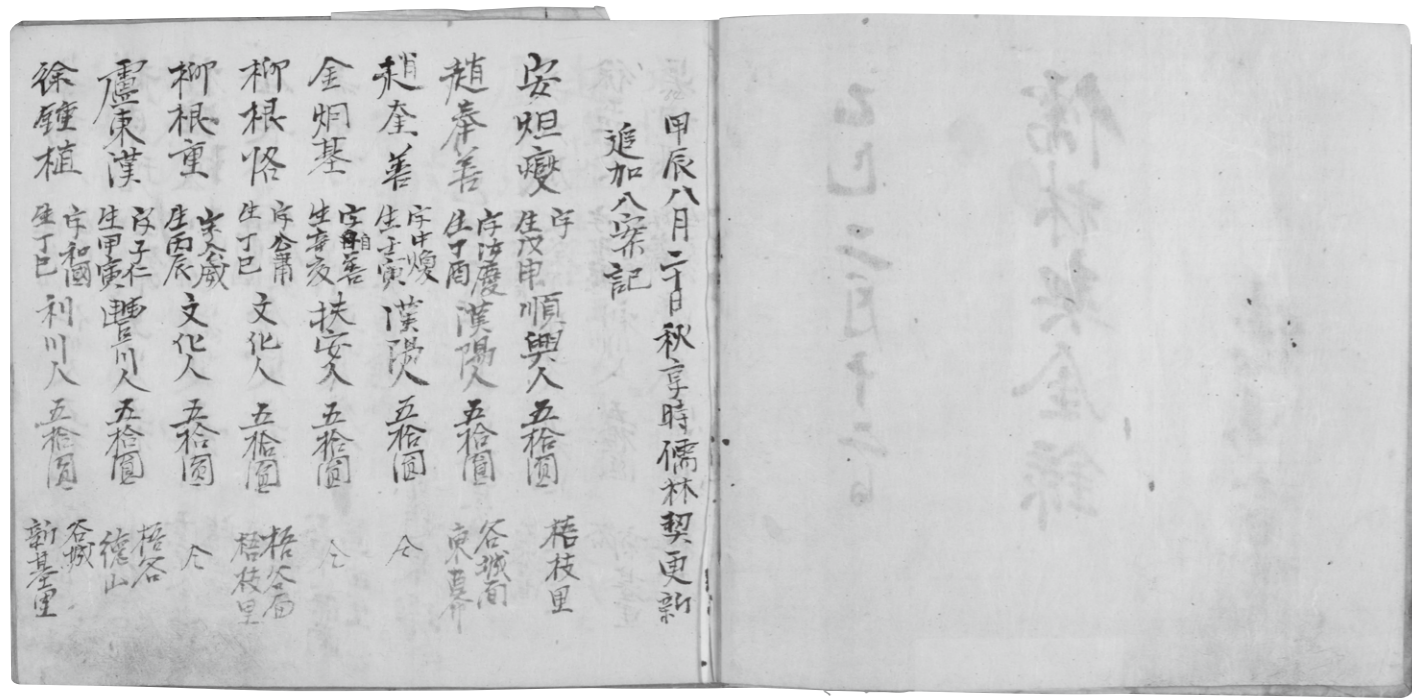 儒林契全錄
甲辰八月二十日秋享時儒林契更新
追加入案記
安炟燮 字 生戊申 順興人 五拾圓 梧枝里
趙奉善 字汝慶 生丁酉 漢陽人 五拾圓 谷城面 東
趙奎善 字中煥 生壬寅 漢陽人 五拾圓 仝
金炯基 字自善 生辛亥 扶安人 五拾圓 仝
柳根恪 字公肅 生丁巳 文化人 五拾圓 梧谷面 梧枝里
柳根重 字 生丙辰 文化人 五拾圓 仝
盧東漢 字子仁 生甲寅 豊川人 五拾圓 梧谷 德山
徐鍾植 字和國 生丁巳 利川人 五拾圓 谷城 新基里